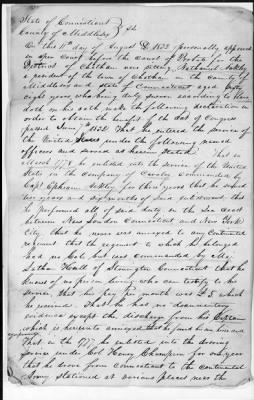 State of Connecticut
County of Middlesex } ss
On this 11th day of August AD 1832 personally appeared
in open Court before the Court of Probate for the
District of Chatham now sitting, Nathaniel
a resident of the town of Chatham in the County of
Middlesex and State of Connecticut aged
eight years who being duly sworn according to law
doth on his oath make the following declaration in
order to obtain the benefit of the Act of Congress
passed June 7th 1832. That he entered the service of
the United States under the following named
officers and served as herein stated. That in
March 177 he enlisted into the service of the United
States in the Company of Cavalry commanded by
Capt Ephraim for three years that he served
two years and six months of said enlistment that
he performed all of said duty on the sea coast
between New London Connecticut and New York
City, that he never was annexed to any Continental
regiment that the regiment to which he belonged
had no Col but was commanded by Maj
Hall of Stonington Connecticut that he
knows of no person living who can testify to his
service, that his pay per month was $ which
he received. That he has no documentary
evidence except the discharge from his Capt
which is hereunto annexed that he found his own horse and
equipments
That in the 1777 he enlisted into the driving
service under Col Henry Champion for one year
that he drove from Connecticut to the Continental
Army stationed at various places near the